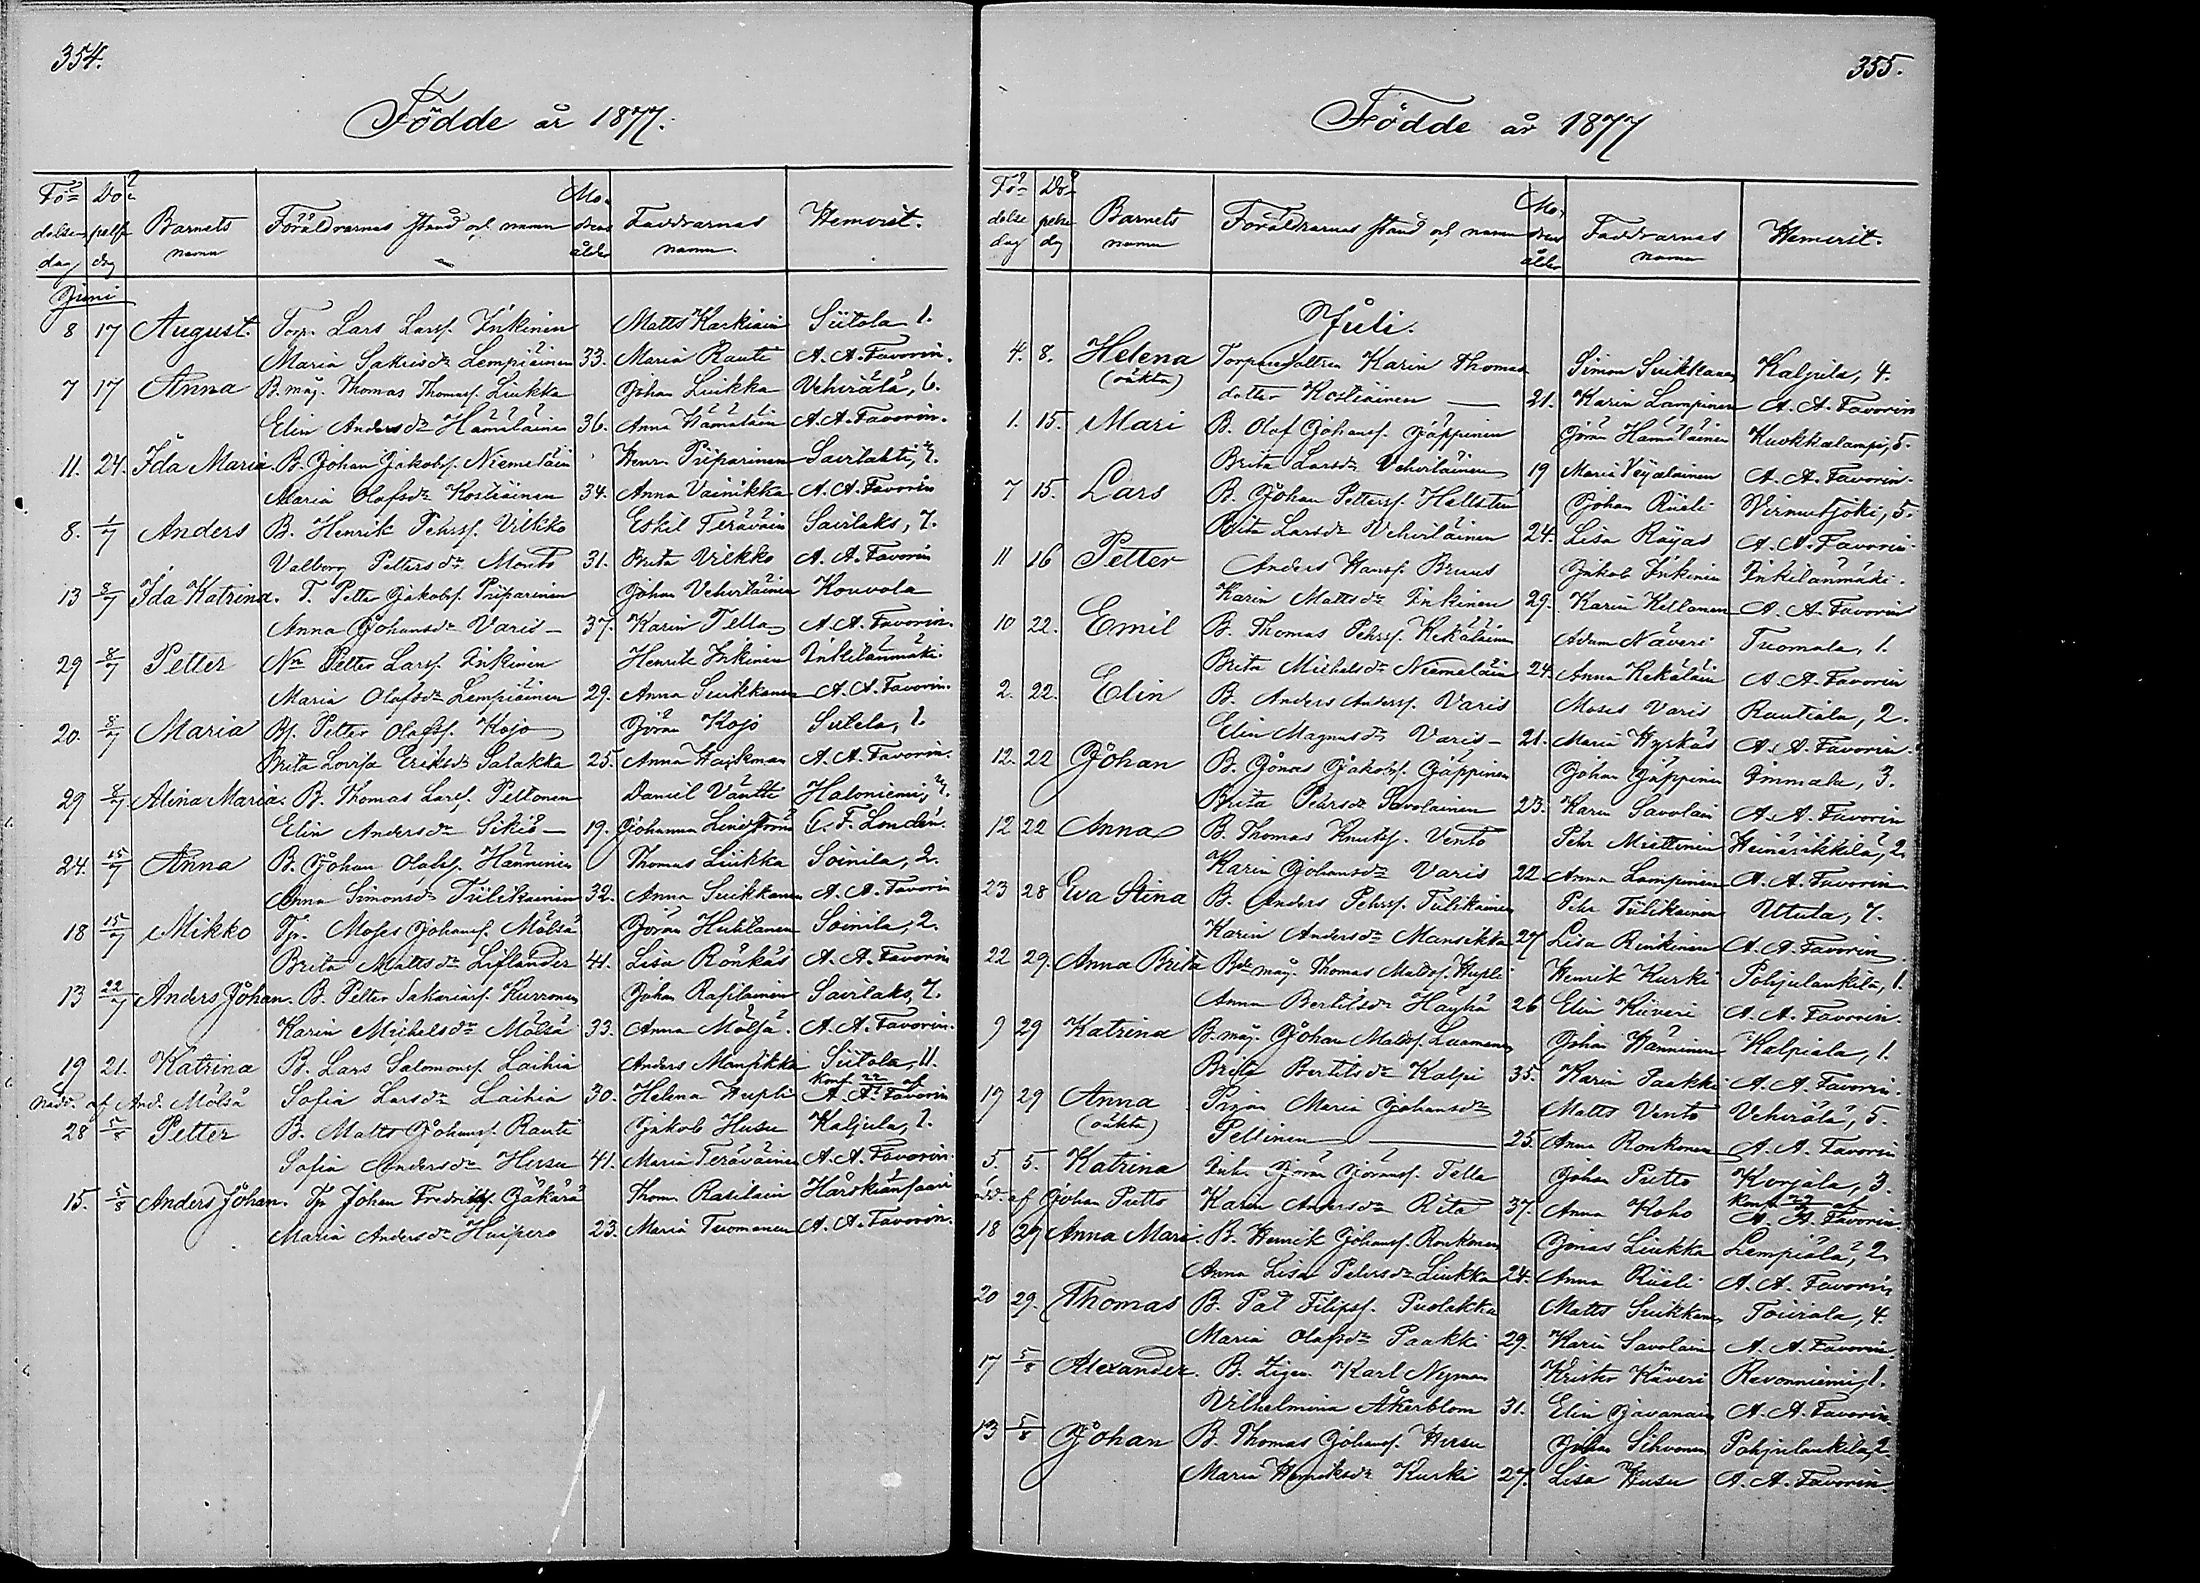 354.
Födde år 1877.
Fö- Dö- Mo-
delse- pelse Barnets Föräldrarnas stånd och namn drens Faddrarnas Hemvist.
dag dag namn ålder namn
Juni
8 17 August. Torp. Lars Larsf. Inkinen Matts Karkiain Siitola 1.
Maria Sakrisdr Lempiäinen 33. Maria Rauti A. A. Favorin.
7 17 Anna B. måg. Thomas Thomasf. Liukka Johan Liukka Vehviälä, 6.
Elin Andersdr Hämäläinen 36. Anna Hämäläin A. A. Favorin.
11. 24. Ida Maria. B. Johan Jakobsf. Niemeläin Henr. Piiparinen Sairlahti, 7.
Maria Olofsdr Kostiäinen 34. Anna Vainikka A. A. Favorin
8. 1/7 Anders B. Henrik Pehrsf. Vilkko Eskil Teräväin Sairlaks, 7.
Valborg Pettersdr Monto 31. Brita Vilkko A. A. Favorin
13 8/7 Ida Katrina. T. Petter Jakobsf. Piiparinen Johan Vehviläinen Kouvola
Anna Johansdr Varis – 37. Karin Tella A. A. Favorin.
29 8/7 Petter Nn Petter Larsf. Inkinen Henrik Inkinen Inkilänmäki.
Maria Olofsdr Lempiäinen 29. Anna Suikkanen A. A. Favorin.
20. 8/7 Maria Bf. Petter Olofsf. Kojo Jöran Kojo Sutela, 1.
Brita Lovisa Eriksdr Salakka 25. Anna Haikman A. A. Favorin.
29 8/7 Alina Maria. B. Thomas Larsf. Peltonen Daniel Väntti Haloniemi, 7.
Elin Andersdr Sikiö – 19. Johanna Lindström C. F. Londén.
24. 15/7 Anna B. Johan Olofsf. Hänninen Thomas Liukka Soinila, 2.
Anna Simonsdr Tiilikainen 32. Anna Suikkanen A. A. Favorin
18 15/7 Mikko Tp. Moses Johansf. Mölsä Jöran Huhtanen Soinila, 2.
Brita Mattsdr Liflander 41. Lisa Rönkäs A. A. Favorin
13 22/7 Anders Johan. B. Petter Sakariasf. Kurronen Johan Rasilainen Sairlaks, 7.
Karin Michelsdr Mölsä 33. Anna Mölsä. A. A. Favorin.
19 21. Katrina B. Lars Salomonsf. Laihia Anders Mansikka Siitola, 11.
Nöddr. af And. Mölsä Sofia Larsdr Laihia 30. Helena Hupli Konf. 22/7 af A. A. Favorin
28 5/8 Petter B. Matts Johansf. Rauti Jakob Husu Kaljula, 1.
Sofia Andersdr Husu 41. Maria Teräväinen A. A. Favorin.
15. 5/8 Anders Johan. Tp Johan Fredriksf. Jäkärä Thom. Rasilain Härskiänsaari
Maria Andersdr Huipero 23. Maria Tuomanen A. A. Favorin.
355.
Födde år 1877
Fö- Dö- Mo-
delse pelse Barnets Föräldrarnas stånd och namn drens Faddrarnas Hemvist.
dag dag namn ålder namn
Juli.
4. 8. Helena Torparedottren Karin Thomas Simon Suikkanen Kaljula, 4.
(oäkta) dotter Kostiainen — 21. Karin Lampinen A. A. Favorin
1. 15. Mari B. Olof Johansf. Jäppinen Jöran Hämäläinen Kuokkalampi, 5.
Brita Larsdr Vehviläinen 19 Maria Veijalainen A. A. Favorin.
7 15. Lars B. Johan Pettersf. Hellsten Johan Rieli Virmutjoki, 5.
Brita Larsdr Vehviläinen 24. Lisa Räyas A. A. Favorin.
11 16 Petter Anders Hansf. Bruus Jakob Inkinen Inkilänmäki.
Karin Mattsdr Inkinen 29. Karin Keltanen A. A. Favorin
10 22. Emil B. Thomas Pehrsf. Kekäläinen Adam Näveri Tuomala, 1.
Brita Michelsdr Niemeläin 24. Anna Kekäläin A. A. Favorin
2. 22. Elin B. Anders Andersf. Varis Moses Varis Rautiala, 2.
Elin Magnusdr Varis – 21. Maria Hyrkäs A. A. Favorin.
12. 22 Johan B. Jonas Jakobsf. Jäppinen Johan Jäppinen Immala, 3.
Brita Pehrsdr Savolainen 23. Karin Savolain A. A. Favorin
12 22 Anna B. Thomas Knutsf. Vento Pehr Miettinen Heinärikkilä, 2.
Karin Johansdr Varis 22. Anna Lampinen A. A. Favorin
23 28 Eva Stina B. Anders Pehrsf. Tiilikainen Pehr Tiilikainen Utula, 7.
Karin Andersdr Mansikka 27 Lisa Rinkinen A. A. Favorin
22 29. Anna Brita Bde måg. Thomas Matssf. Hupli Henrik Kurki Pohjalankila, 1.
Anna Bertilsdr Häyhä 26 Elin Kiiveri A. A. Favorin.
9 29 Katrina B. måg. Johan Matssf. Luumanen Johan Hänninen Kalpiala, 1.
Brita Bertilsdr Kalpi 35. Karin Paakki A. A. Favorin.
19 29 Anna Pigan Maria Johansdr Matts Vento Vehviälä, 5.
(oäkta) Pellinen — 25. Anna Ronkonen A. A. Favorin
5. 5. Katrina Inh. Jöran Jöransf. Tella Johan Pietto Korjala, 3.
nöd. af Johan Pietto Karin Andersdr Rita 37. Anna Koho Konf. 29/7 af A. A. Favorin
18 29 Anna Mari. B. Henrik Johansf. Ronkonen Jonas Liukka Lempiälä, 2.
Anna Lisa Petersdr Liukka 24. Anna Rieli A. A. Favorin
20 29. Thomas B. Pål Filipsf. Puolakka Matts Suikkanen Toirala, 4.
Maria Olofsdr Paakki 29. Karin Savolain A. A. Favorin.
17 5/8 Alexander. B. Zigen. Karl Nyman Krister Käveri Ravonniemi, 1.
Vilhelmina Åkerblom 31. Elin Javanain A. A. Favorin.
13 5/8 Johan B. Thomas Johansf. Husu Johan Sihvonen Pohjalankila, 2.
Maria Henriksdr Kurki 27. Lisa Husu A. A. Favorin.